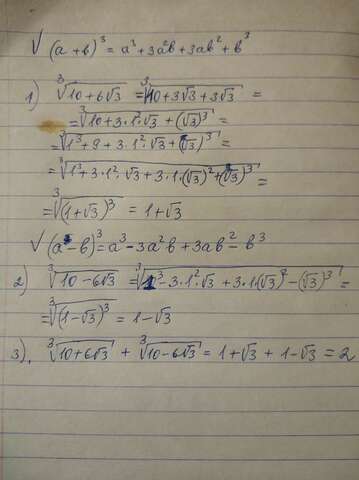 √ (a+b)³ = a³+3a²b+3ab²+b³
1) ∛(10+6√3) = ∛(10+3√3+3√3) =
= ∛(10+3·1²·√3+(√3)³) =
= ∛(1³+9+3·1²·√3+(√3)³) =
= ∛(1³+3·1²·√3+3·1·(√3)²+(√3)³) =
= ∛((1+√3)³) = 1+√3
√ (a-b)³ = a³-3a²b+3ab²-b³
2) ∛(10-6√3) = ∛(1³-3·1²·√3+3·1(√3)²-(√3)³) =
= ∛((1-√3)³) = 1-√3
3). ∛(10+6√3) + ∛(10-6√3) = 1+√3+1-√3 = 2